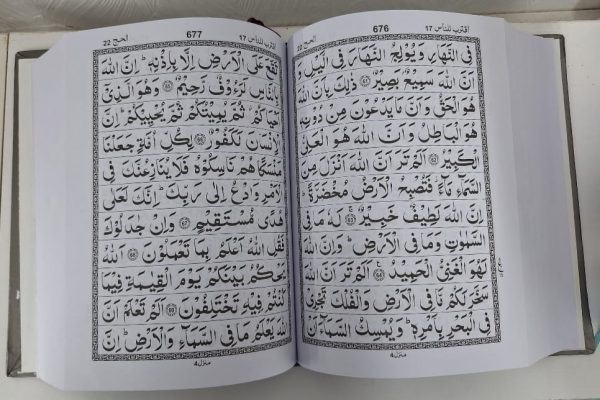 اقترب للناس 17 676 الحج 22
فِي النَّهَارِ وَيُوْلِجُ النَّهَارَ فِي الَّيْلِ وَ
اَنَّ اللّٰهَ سَمِيْعٌۢ بَصِيْرٌ ﴿٦١﴾ ذٰلِكَ بِاَنَّ اللّٰهَ
هُوَ الْحَقُّ وَاَنَّ مَا يَدْعُوْنَ مِنْ دُوْنِهٖ
هُوَ الْبَاطِلُ وَاَنَّ اللّٰهَ هُوَ الْعَلِيُّ
الْكَبِيْرُ ﴿٦٢﴾ اَلَمْ تَرَ اَنَّ اللّٰهَ اَنْزَلَ مِنَ
السَّمَآءِ مَآءً فَتُصْبِحُ الْاَرْضُ مُخْضَرَّةً ؕ
اِنَّ اللّٰهَ لَطِيْفٌ خَبِيْرٌ ﴿٦٣﴾ لَهٗ مَا فِي
السَّمٰوٰتِ وَمَا فِي الْاَرْضِ ؕ وَاِنَّ اللّٰهَ
لَهُوَ الْغَنِيُّ الْحَمِيْدُ ﴿٦٤﴾ اَلَمْ تَرَ اَنَّ اللّٰهَ
سَخَّرَ لَكُمْ مَّا فِي الْاَرْضِ وَالْفُلْكَ تَجْرِيْ
فِي الْبَحْرِ بِاَمْرِهٖ ؕ وَيُمْسِكُ السَّمَآءَ اَنْ
منزل ٤
اقترب للناس 17 677 الحج 22
تَقَعَ عَلَى الْاَرْضِ اِلَّا بِاِذْنِهٖ ؕ اِنَّ اللّٰهَ
بِالنَّاسِ لَرَءُوْفٌ رَّحِيْمٌ ﴿٦٥﴾ وَهُوَ الَّذِيْٓ
اَحْيَاكُمْ ثُمَّ يُمِيْتُكُمْ ثُمَّ يُحْيِيْكُمْ ؕ اِنَّ
الْاِنْسَانَ لَكَفُوْرٌ ﴿٦٦﴾ لِكُلِّ اُمَّةٍ جَعَلْنَا
مَنْسَكًا هُمْ نَاسِكُوْهُ فَلَا يُنَازِعُنَّكَ فِي
الْاَمْرِ وَادْعُ اِلٰى رَبِّكَ ؕ اِنَّكَ لَعَلٰى
هُدًى مُّسْتَقِيْمٍ ﴿٦٧﴾ وَاِنْ جٰدَلُوْكَ
فَقُلِ اللّٰهُ اَعْلَمُ بِمَا تَعْمَلُوْنَ ﴿٦٨﴾ اَللّٰهُ
يَحْكُمُ بَيْنَكُمْ يَوْمَ الْقِيٰمَةِ فِيْمَا
كُنْتُمْ فِيْهِ تَخْتَلِفُوْنَ ﴿٦٩﴾ اَلَمْ تَعْلَمْ اَنَّ
اللّٰهَ يَعْلَمُ مَا فِي السَّمَآءِ وَالْاَرْضِ ؕ اِنَّ
منزل ٤